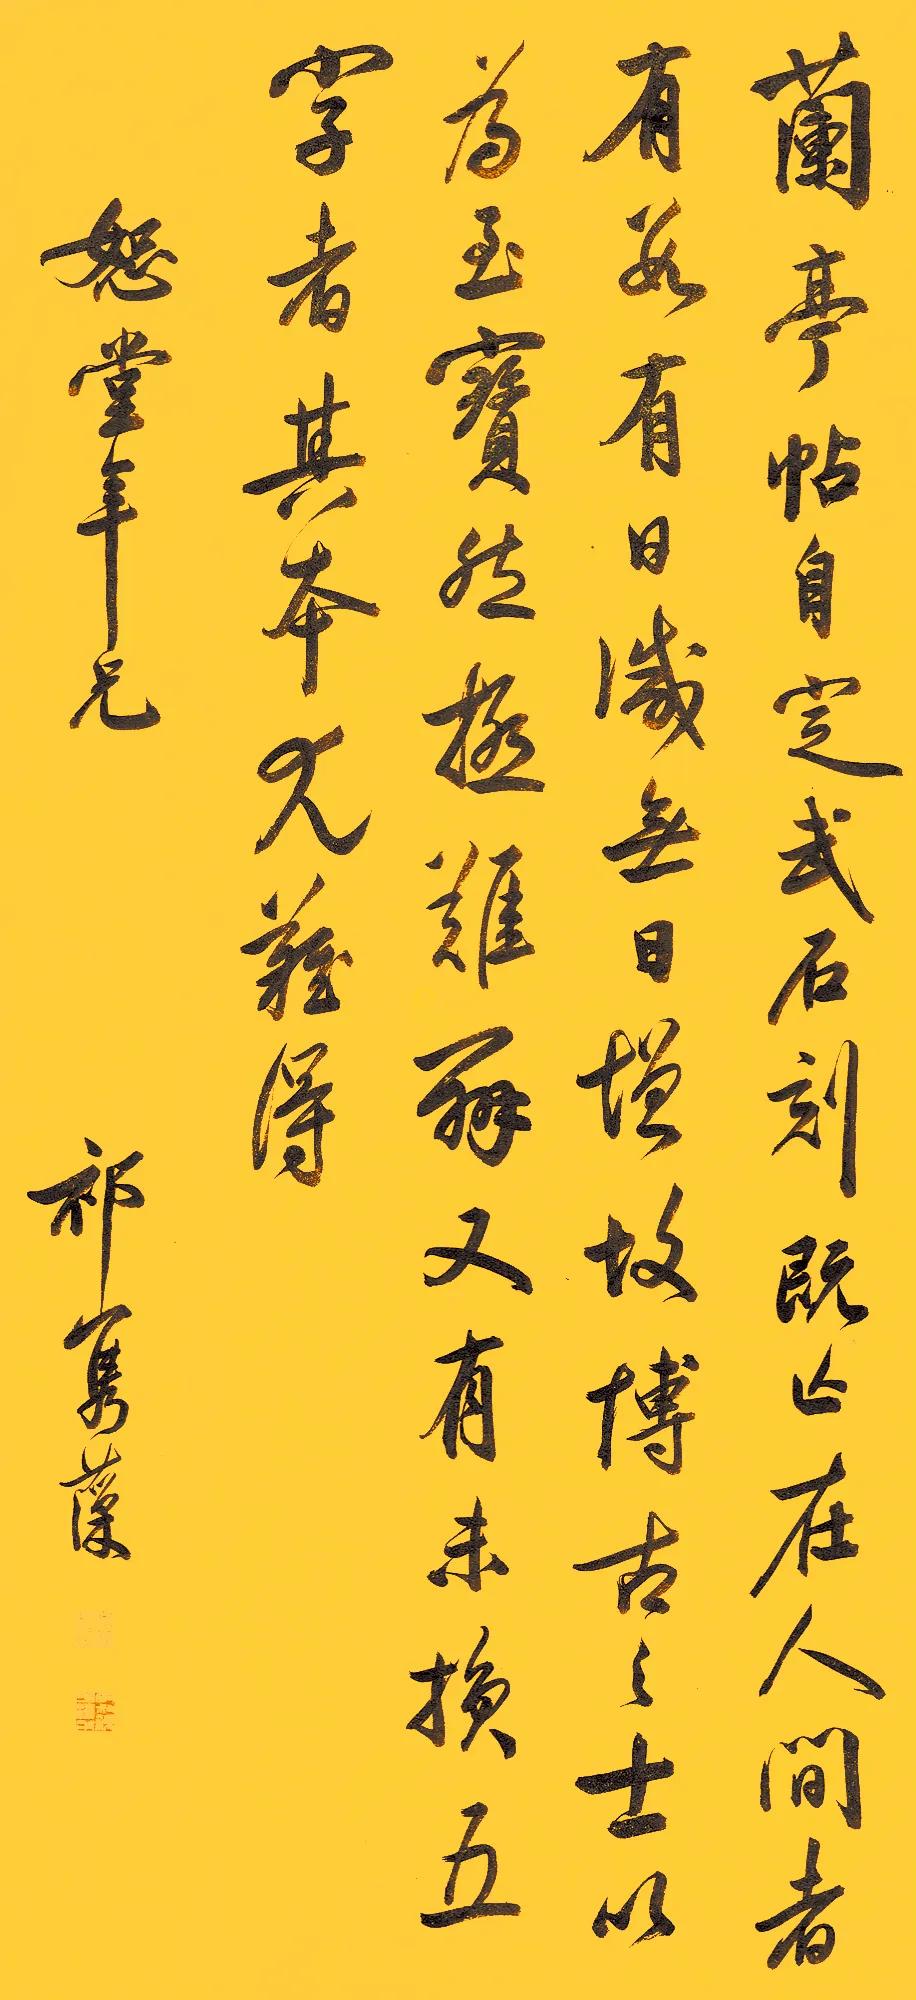 蘭亭帖自定武石刻既亡在人間者
有數有日減無日增故博古之士以
為至寶然極難辨又有未損五
字者其本尤難得
恕堂年兄
祁寯藻